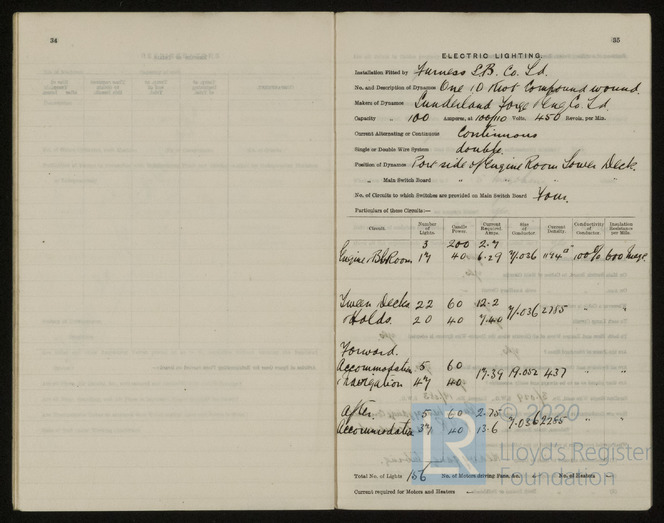 34
35
ELECTRIC LIGHTING.
Installation Fitted by Furness S.B. Co. Ld.
No. and Description of Dynamos One 10 Kwt Compound wound.
Makers of Dynamos Sunderland Forge & Eng Co. Ld
Capacity " 100 Amperes, at 100/110 Volts, 450 Revols. per Min.
Current Alternating or Continuous Continuous
Single or Double Wire System double.
Position of Dynamos Port side of Engine Room Lower Deck.
" Main Switch Board " " "
No. of Circuits to which Switches are provided on Main Switch Board Four.
Particulars of these Circuits:—
Circuit. Number of Lights. Candle Power. Current Required Amps. Size of Conductor. Current Density. Conductivity of Conductor. Insulation Resistance per Mile.
3 200 2.7
Engine & B. Room 17 40 6.29 7/.036 1194 100% 600 megs.
Tween Decks 22 60 12.2
& Holds. 20 40 7.40 7/.036 2785 " "
Forward.
Accommodation 5 60
& navigation 47 40 17.39 19.052 437 " "
After 5 60 2.75
Accommodation 37 40 13.6 7.036 2285 " "
Total No. of Lights 156 No. of Motors driving Fans, &c. - No. of Heaters -
Current required for Motors and Heaters -
© 2020
LR
Lloyd's Register
Foundation